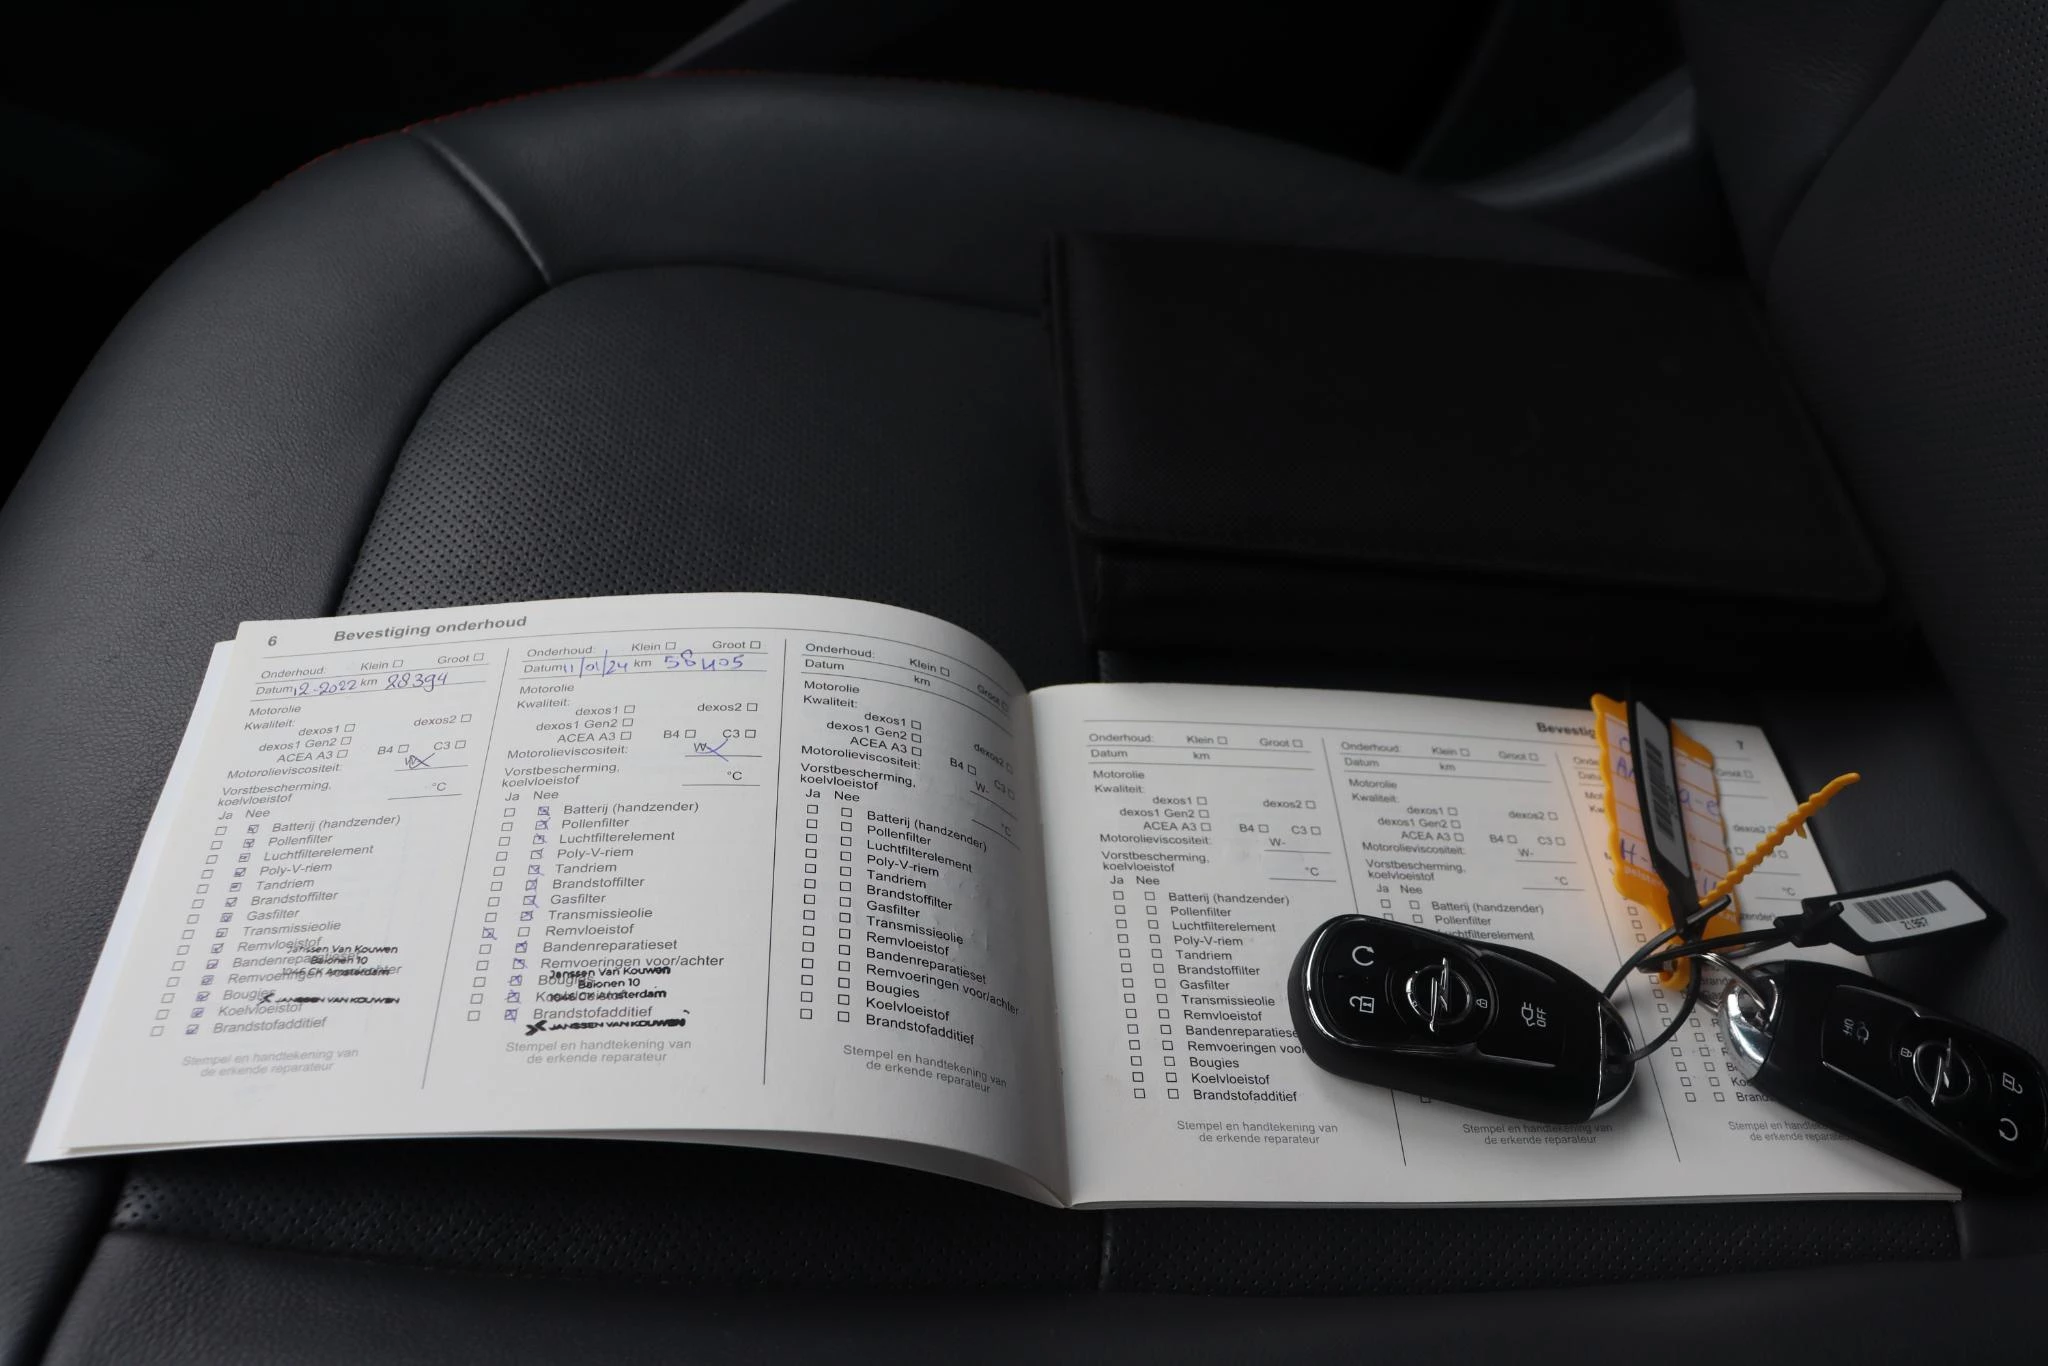 6 Bevestiging onderhoud
Onderhoud: Klein Groot
Datum 12-2022 km 28394
Motorolie
Kwaliteit:
dexos1 dexos2
dexos1 Gen2
ACEA A3 B4 C3
Motorolieviscositeit: W-
Vorstbescherming,
koelvloeistof °C
Ja Nee
Batterij (handzender)
Pollenfilter
Luchtfilterelement
Poly-V-riem
Tandriem
Brandstoffilter
Gasfilter
Transmissieolie
Remvloeistof
Janssen Van Kouwen
Bandenreparatieset
Baionen 10
Remvoeringen voor/achter
1046 CK Amsterdam
Bougies
JANSSEN VAN KOUWEN
Koelvloeistof
Brandstofadditief
Stempel en handtekening van
de erkende reparateur
Onderhoud: Klein Groot
Datum 11/01/24 km 58405
Motorolie
Kwaliteit:
dexos1 dexos2
dexos1 Gen2
ACEA A3 B4 C3
Motorolieviscositeit: W-
Vorstbescherming,
koelvloeistof °C
Ja Nee
Batterij (handzender)
Pollenfilter
Luchtfilterelement
Poly-V-riem
Tandriem
Brandstoffilter
Gasfilter
Transmissieolie
Remvloeistof
Bandenreparatieset
Remvoeringen voor/achter
Janssen Van Kouwen
Bougies
Baionen 10
Koelvloeistof
1046 CK Amsterdam
Brandstofadditief
JANSSEN VAN KOUWEN
Stempel en handtekening van
de erkende reparateur
Onderhoud: Klein Groot
Datum km
Motorolie
Kwaliteit:
dexos1 dexos2
dexos1 Gen2
ACEA A3 B4 C3
Motorolieviscositeit: W-
Vorstbescherming,
koelvloeistof °C
Ja Nee
Batterij (handzender)
Pollenfilter
Luchtfilterelement
Poly-V-riem
Tandriem
Brandstoffilter
Gasfilter
Transmissieolie
Remvloeistof
Bandenreparatieset
Remvoeringen voor/achter
Bougies
Koelvloeistof
Brandstofadditief
Stempel en handtekening van
de erkende reparateur
7
Onderhoud: Klein Groot
Datum km
Motorolie
Kwaliteit:
dexos1 dexos2
dexos1 Gen2
ACEA A3 B4 C3
Motorolieviscositeit: W-
Vorstbescherming,
koelvloeistof °C
Ja Nee
Batterij (handzender)
Pollenfilter
Luchtfilterelement
Poly-V-riem
Tandriem
Brandstoffilter
Gasfilter
Transmissieolie
Remvloeistof
Bandenreparatiese
Remvoeringen voor
Bougies
Koelvloeistof
Brandstofadditief
Stempel en handtekening van
de erkende reparateur
Onderhoud: Klein Groot
Datum km
Motorolie
Kwaliteit:
dexos1 dexos2
dexos1 Gen2
ACEA A3 B4 C3
Motorolieviscositeit: W-
Vorstbescherming,
koelvloeistof °C
Ja Nee
Batterij (handzender)
Pollenfilter
Luchtfilterelement
Stempel en handtekening van
de erkende reparateur
Groot
dexos2
°C
Stempel en handteke
de erkende reparateur
OFF
OFF